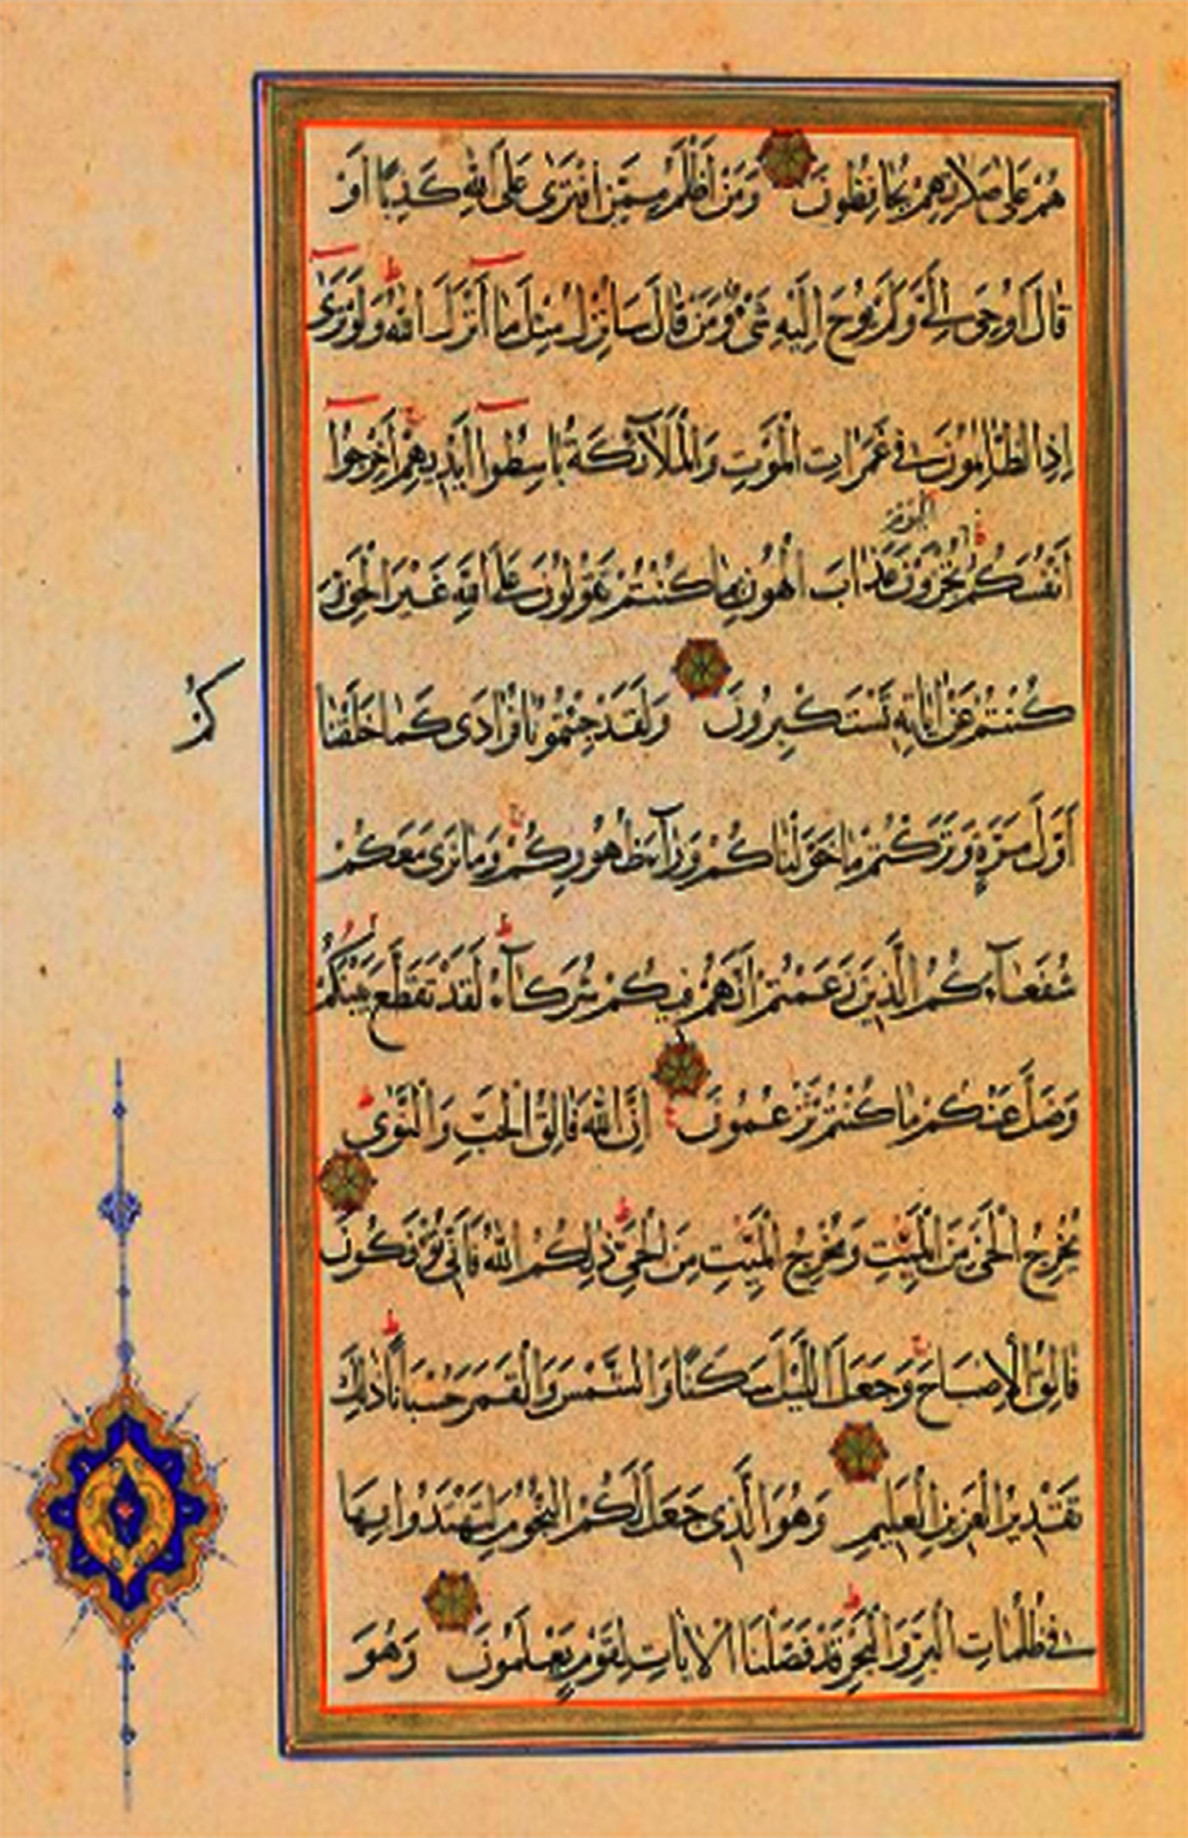 هُمْ عَلَى صَلَاتِهِمْ يُحَافِظُونَ وَمَنْ أَظْلَمُ مِمَّنِ افْتَرَى عَلَى اللَّهِ كَذِبًا أَوْ
قَالَ أُوحِيَ إِلَيَّ وَلَمْ يُوحَ إِلَيْهِ شَيْءٌ وَمَنْ قَالَ سَأُنْزِلُ مِثْلَ مَا أَنْزَلَ اللَّهُ وَلَوْ تَرَى
إِذِ الظَّالِمُونَ فِي غَمَرَاتِ الْمَوْتِ وَالْمَلَائِكَةُ بَاسِطُوا أَيْدِيهِمْ أَخْرِجُوا
اليوم
أَنْفُسَكُمُ تُجْزَوْنَ عَذَابَ الْهُونِ بِمَا كُنْتُمْ تَقُولُونَ عَلَى اللَّهِ غَيْرَ الْحَقِّ
كُنْتُمْ عَنْ آيَاتِهِ تَسْتَكْبِرُونَ وَلَقَدْ جِئْتُمُونَا فُرَادَى كَمَا خَلَقْنَا
كُمْ
أَوَّلَ مَرَّةٍ وَتَرَكْتُمْ مَا خَوَّلْنَاكُمْ وَرَآءَ ظُهُورِكُمْ وَمَا نَرَى مَعَكُمْ
شُفَعَآءَكُمُ الَّذِينَ زَعَمْتُمْ أَنَّهُمْ فِيكُمْ شُرَكَآءُ لَقَدْ تَقَطَّعَ بَيْنَكُمْ
وَضَلَّ عَنْكُمْ مَا كُنْتُمْ تَزْعُمُونَ إِنَّ اللَّهَ فَالِقُ الْحَبِّ وَالنَّوَى
يُخْرِجُ الْحَيَّ مِنَ الْمَيِّتِ وَمُخْرِجُ الْمَيِّتِ مِنَ الْحَيِّ ذَلِكُمُ اللَّهُ فَأَنَّى تُؤْفَكُونَ
فَالِقُ الْإِصْبَاحِ وَجَعَلَ اللَّيْلَ سَكَنًا وَالشَّمْسَ وَالْقَمَرَ حُسْبَانًا ذَلِكَ
تَقْدِيرُ الْعَزِيزِ الْعَلِيمِ وَهُوَ الَّذِي جَعَلَ لَكُمُ النُّجُومَ لِتَهْتَدُوا بِهَا
فِي ظُلُمَاتِ الْبَرِّ وَالْبَحْرِ قَدْ فَصَّلْنَا الْآيَاتِ لِقَوْمٍ يَعْلَمُونَ وَهُوَ